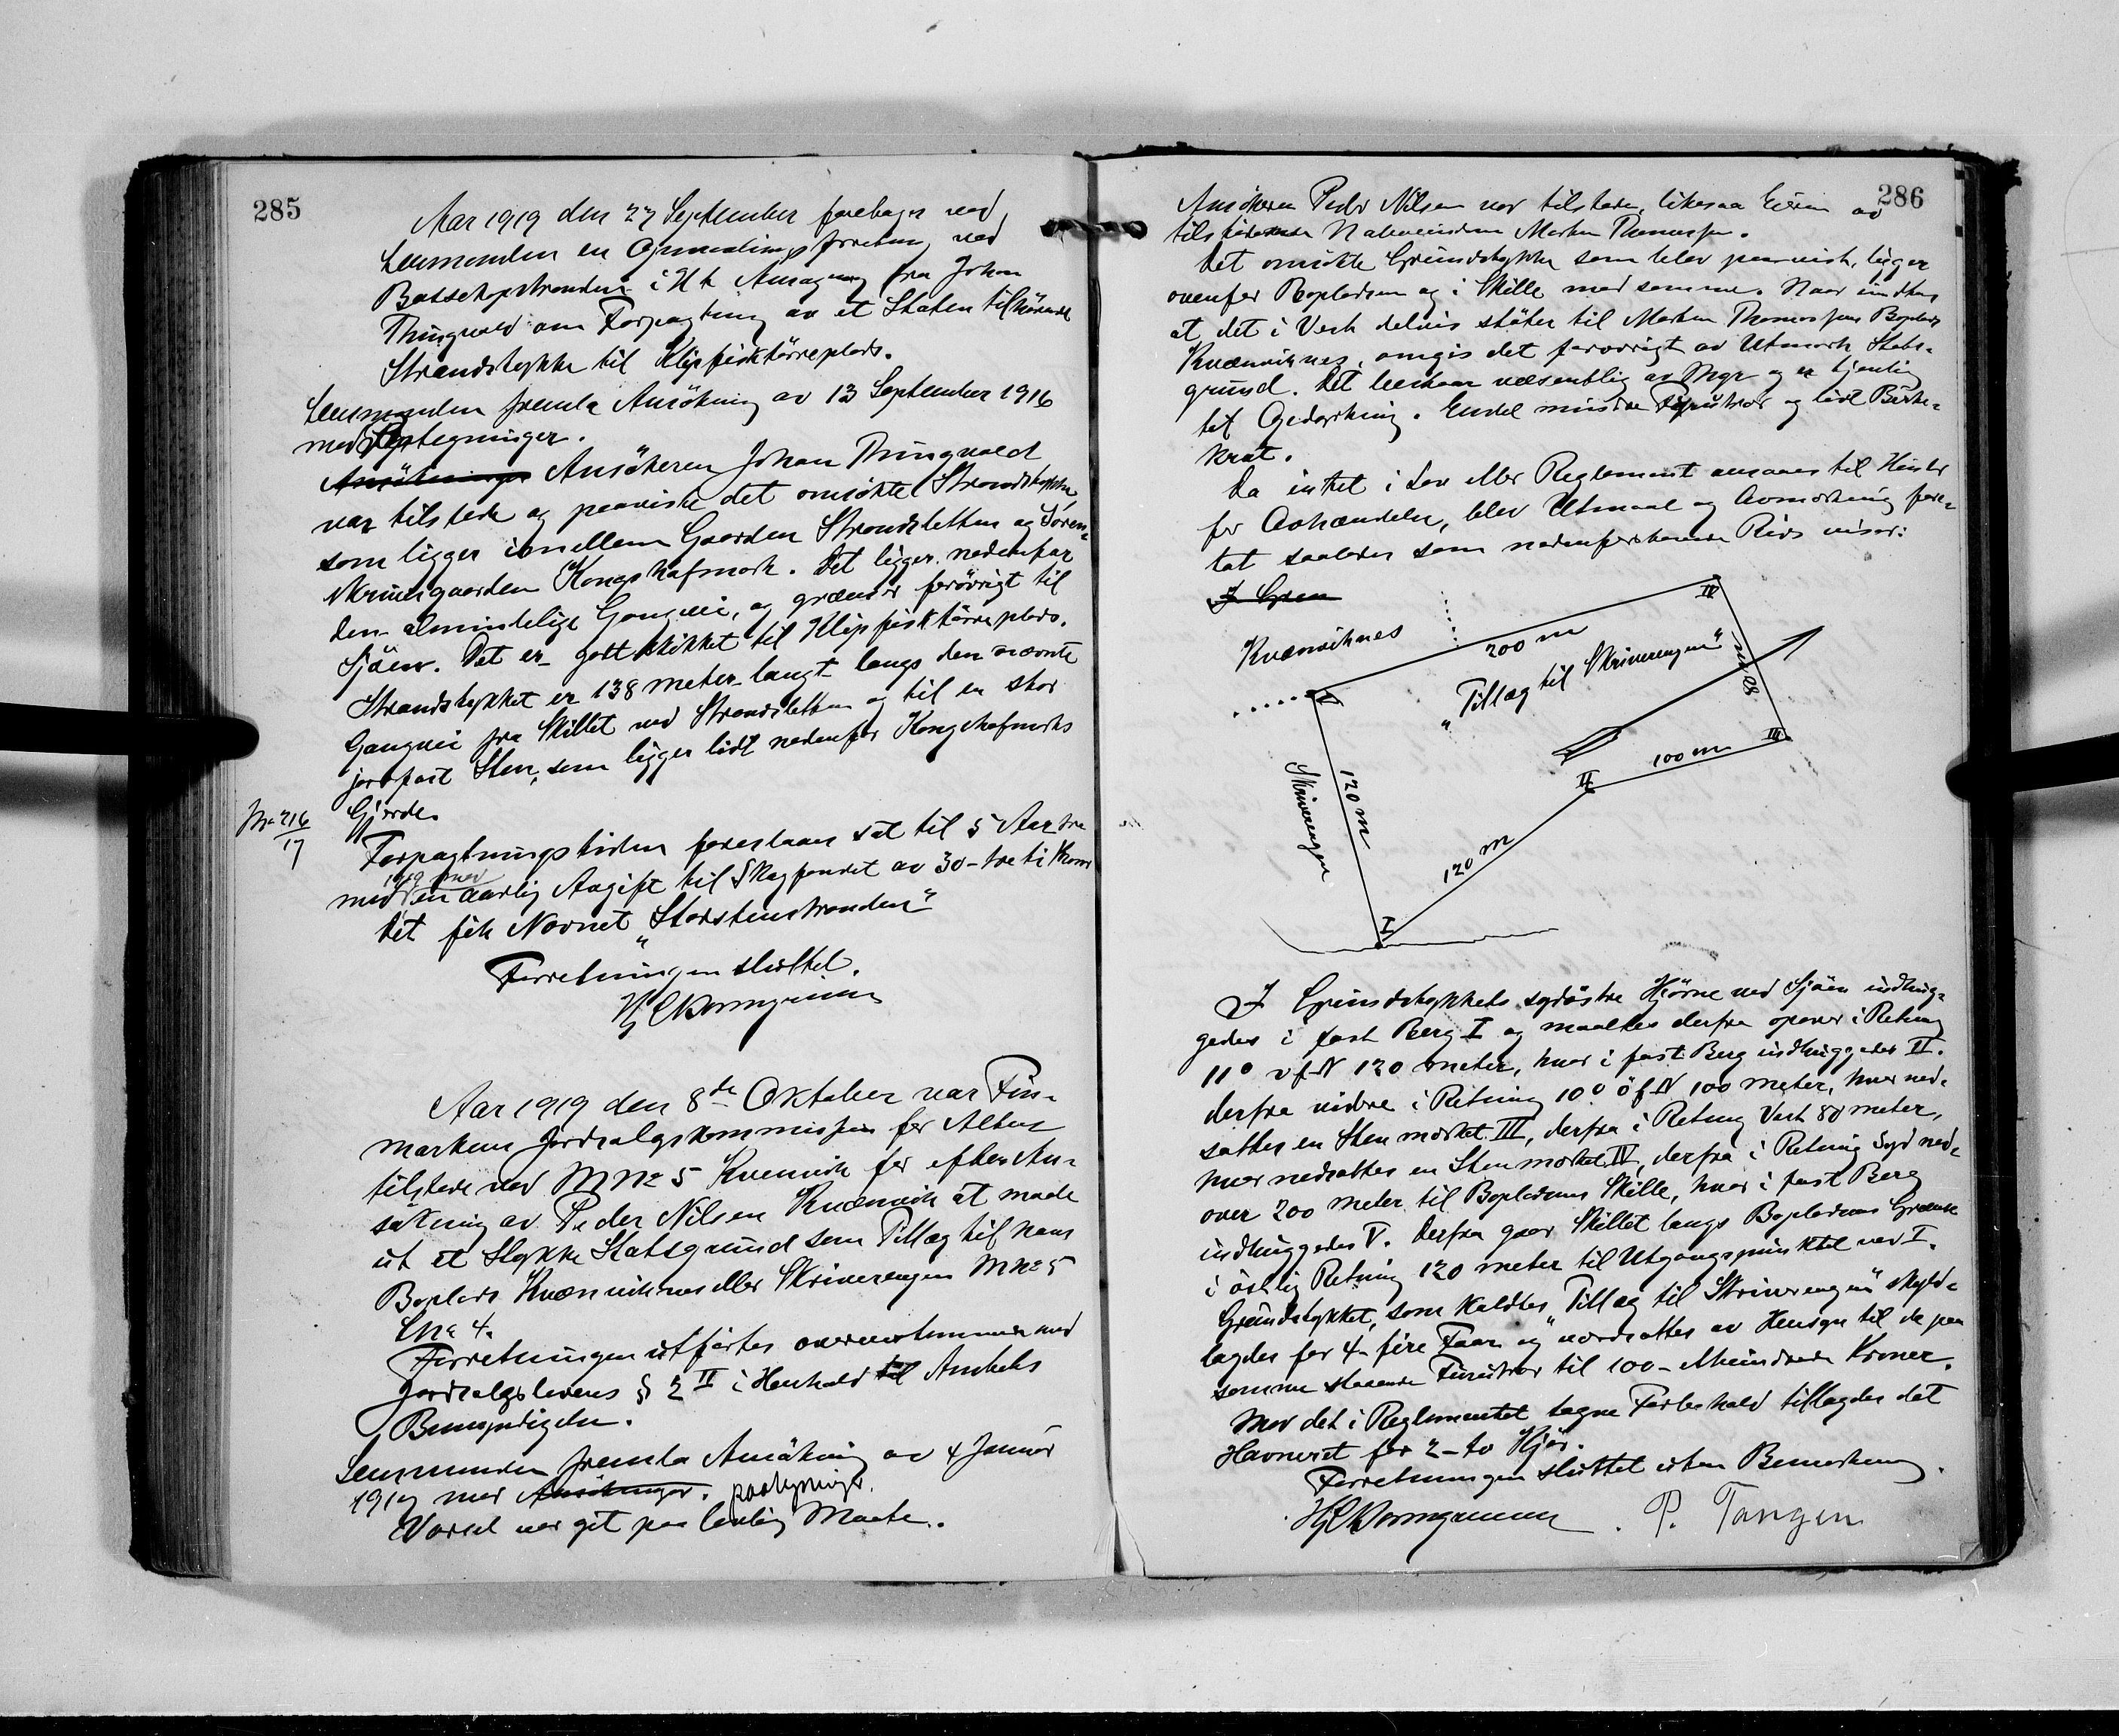 285
Aar 1919 den 27 September foretoges ved
Lensmanden en Opmaalingsforretning ved
Bossekopstranden i H t Ansøgning fra Johan
Thingvold om Forpagtning av et Staten tilhørende
Strandstykke til Klipfisktørreplads.
Lensmanden fremla Ansøkning av 13 September 1916
med Paategninger.
Ansøkeren Johan Thingvold
var tilstede og paaviste det omsøkte Strandstykke
som ligger imellem Gaarden Strandsletten og Soren-
skrivergaarden Kongshofmark. Det ligger nedenfor
den almindelige Gangvei, og grænser forøvrigt til
Sjøen. Det er godt skikket til Klipfisktørreplads.
Strandstykket er 138 meter langt langs den nævnte
Gangvei fra Skillet ved Strandsletten og til en stor
jordfast Sten, som ligger lidt nedenfor Kongshofmarks
Gjærde.
Nr 216
17
Forpagtningstiden foreslaaes sat til 5 Aar fra
1919 med
en aarlig Avgift til Skogfondet av 30 - treti Kroner
Det fik Navnet „Storstenstranden"
Forretningen sluttet.
Aar 1919 den 8de Oktober var Fin-
markens Jordsalgskommission for Alten
tilstede ved M No 5 Kvenvik for efter An-
søkning av Peder Nilsen Kvænvik at maale
ut et Stykke Statsgrund som Tillæg til hans
Boplads Kvænviknes eller Skriverengen M No 5
L No 4.
Forretningen utførtes overensstemmende med
Jordsalgslovens § 2 II i Henhold til Amtets
Bemyndigelse.
Lensmanden fremla Ansøkning av 4 Januar
1919 med paategninger.
Varsel var git paa lovlig Maate.
286
Ansøkeren Peder Nilsen var tilstede, likesaa Eieren av
tilstødende Naboeiendom Morten Thomassen.
Det omsøkte Grundstykke som blev paavist, ligger
ovenfor Bopladsen og i Skille med samme. Naar undtas
at det i Vest delvis støter til Morten Thomassens Boplads
Kvænviknes, omgis det forøvrigt av Utmark Stats-
grund. Det bestaar væsentlig av Myr og er tjenlig
til Opdyrkning. Endel mindre Furutrær og lidt Birke-
krat.
Da intet i Lov eller Reglement ansaaes til Hinder
for Avhændelse, blev Utmaal og Avmerkning fore-
tat saaledes som nedenforstaaende Rids viser:
I Gren
Kvænviknes
200 m
IV
„Tillæg til Skriverengen"
80 m
V
III
100 m
II
Skriverengen
120 m
120 m
I
I Grundstykkets sydøstre Hjørne ved Sjøen indhug-
gedes i fast Berg I og maaltes derfra opover i Retning
11° v f N 120 meter, hvor i fast Berg indhuggedes II.
derfra videre i Retning 10° ø f N 100 meter, hvor ned-
sattes en Sten merket III, derfra i Retning Vest 80 meter,
hvor nedsattes en Sten merket IV, derfra i Retning Syd ned-
over 200 meter til Bopladsens Skille, hvor i fast Berg
indhuggedes V. Derfra gaar Skillet langs Bopladsens Grænse
i østlig Retning 120 meter til Utgangspunktet ved I.
Grundstykket, som kaldtes „Tillæg til Skriverengen" skyld-
lagdes for 4 - fire Faar og værdsattes av Hensyn til de paa
samme staaende Furutrær til 100 - Ethundrede Kroner.
Mot det i Reglementet tagne Forbehold tillagdes det
Havneret for 2 - to Kjør.
Forretningen sluttet uten Bemerkning.
P. Tangen